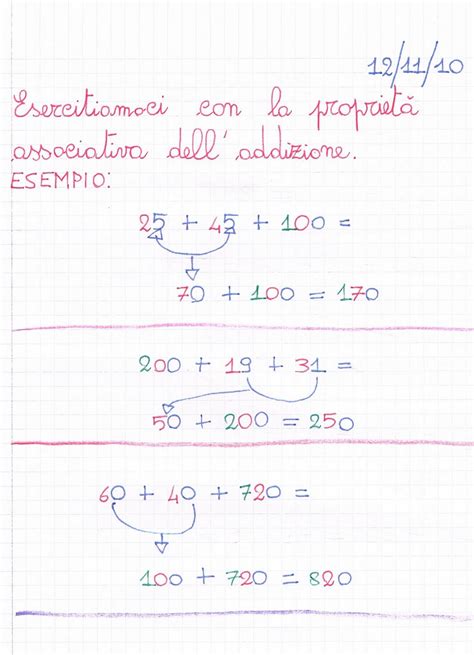 12/11/10
Esercitiamoci con la proprietà
associativa dell'addizione.
ESEMPIO:
25 + 45 + 100 =
70 + 100 = 170
200 + 19 + 31 =
50 + 200 = 250
60 + 40 + 720 =
100 + 720 = 820